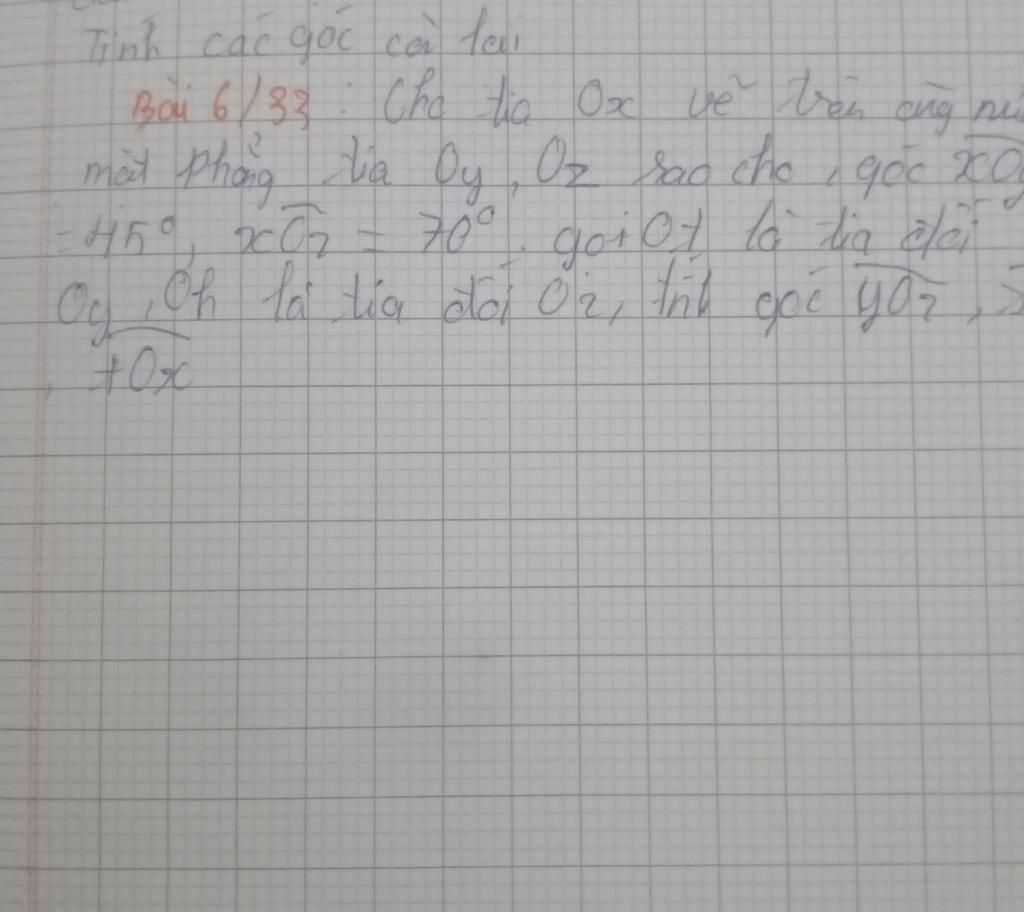 Tính các góc còn lại
Bài 6/33 : Cho tia Ox vẽ trên cùng nử
mặt phẳng tia Oy, Oz sao cho, góc xOy
= 45°, xOz = 70°. gọi Ot là tia đối
Oy, Oh là tia đối Oz, tính góc yOz,
, tOx